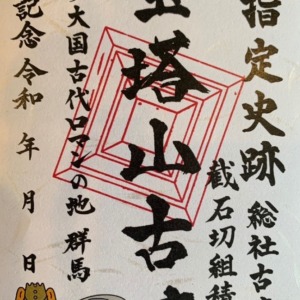 指定史跡 総社古
截石切組積
塔山古
大国古代ロマンの地 群馬
記念 令和 年 月 日